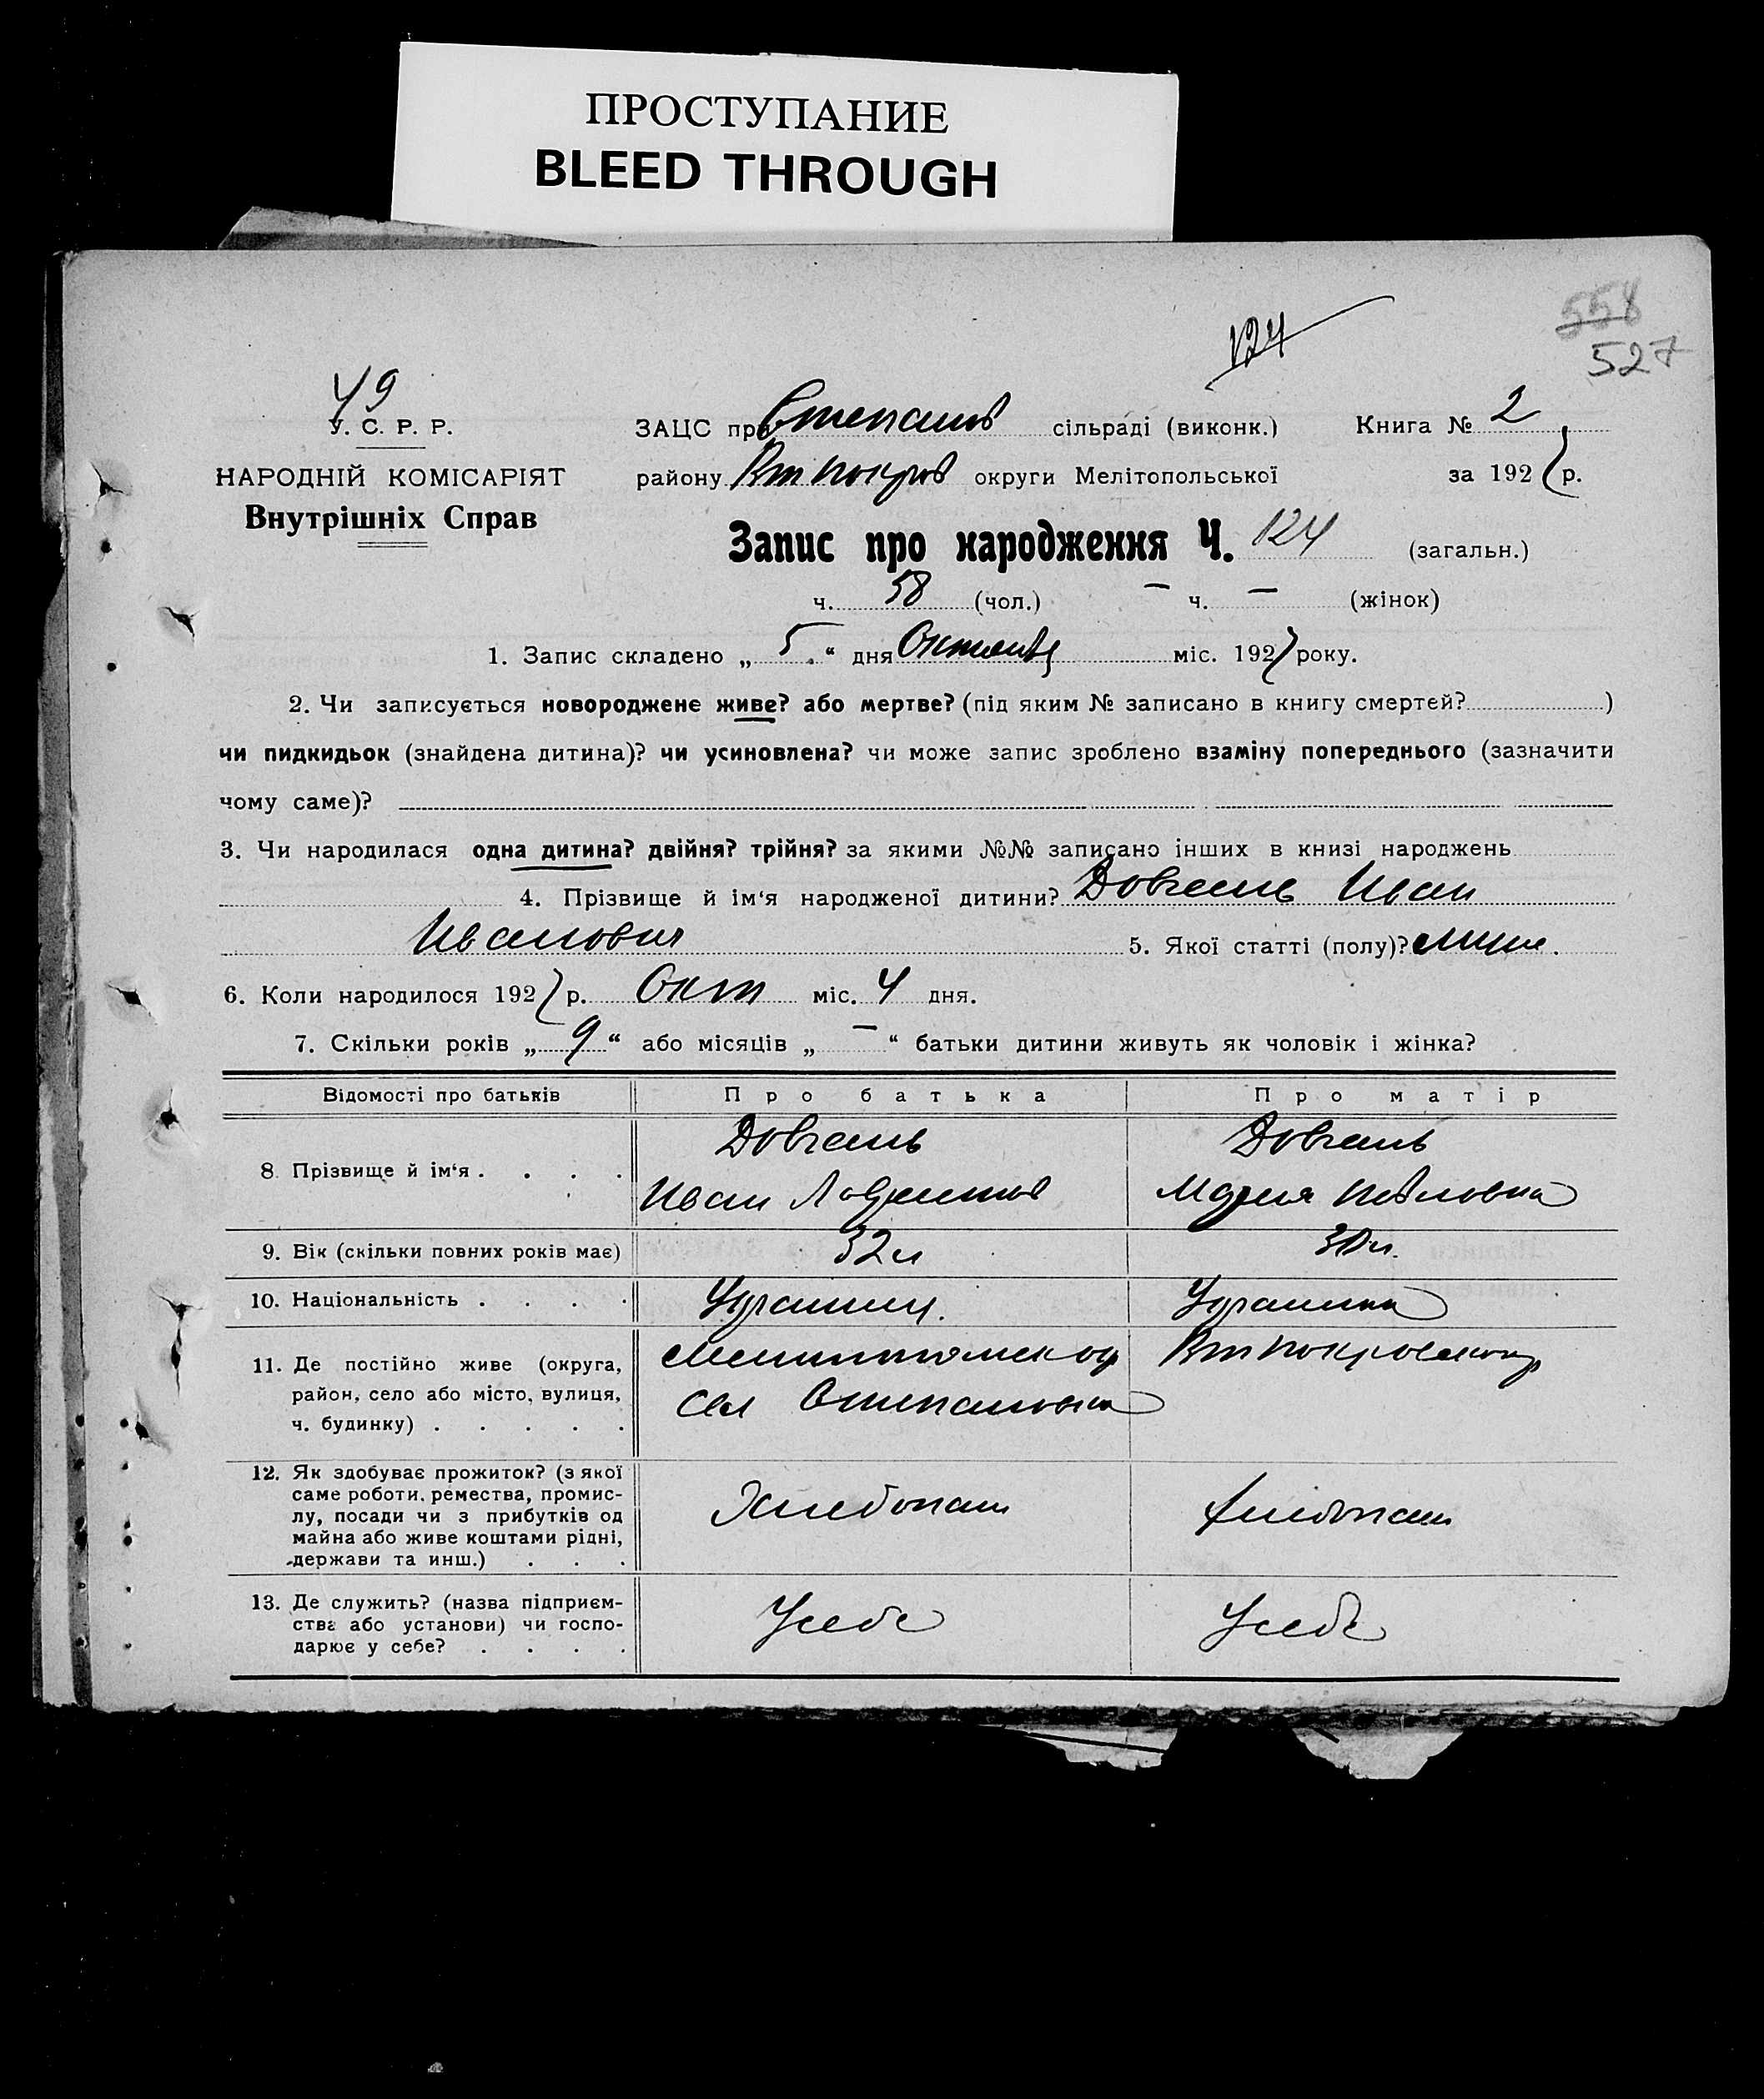 ПРОСТУПАНИЕ
BLEED THROUGH
124
558
527
49
У. С. Р. Р.
НАРОДНІЙ КОМІСАРІЯТ
Внутрішніх Справ
ЗАЦС при Степанов сільраді (виконк.) Книга № 2
району Вт Покров округи Мелітопольської за 1927 р.
Запис про народження Ч. 124 (загальн.)
ч. 58 (чол.) — ч. — (жінок)
1. Запис складено „ 5 “ дня Октября міс. 1927 року.
2. Чи записується новороджене живе? або мертве? (під яким № записано в книгу смертей? )
чи пидкидьок (знайдена дитина)? чи усиновлена? чи може запис зроблено взаміну попереднього (зазначити
чому саме)?
3. Чи народилася одна дитина? двійня? трійня? за якими №№ записано інших в книзі народжень
4. Прізвище й ім‘я народженої дитини? Довгань Иван
Иванович 5. Якої статті (полу)?
6. Коли народилося 1927 р. Окт міс. 4 дня.
7. Скільки років „ 9 “ або місяців „ — “ батьки дитини живуть як чоловік і жінка?
Відомості про батьків Про батька Про матір
8. Прізвище й ім‘я . . . . Довгань Довгань
Иван Мария Павловна
9. Вік (скільки повних років має) 32 л 30 л.
10. Національність . . . . Украинец. Украинка
11. Де постійно живе (округа, район, село або місто, вулиця, ч. будинку) . . . . . Мелитопольск окр Вт Покровского р
Сел Степановка
12. Як здобуває прожиток? (з якої саме роботи, ремества, промислу, посади чи з прибутків од майна або живе коштами рідні, держави та инш.) . . . Хлебопаш Хлебопаш
13. Де служить? (назва підприємства або установи) чи господарює у себе? . . . . У себе У себе